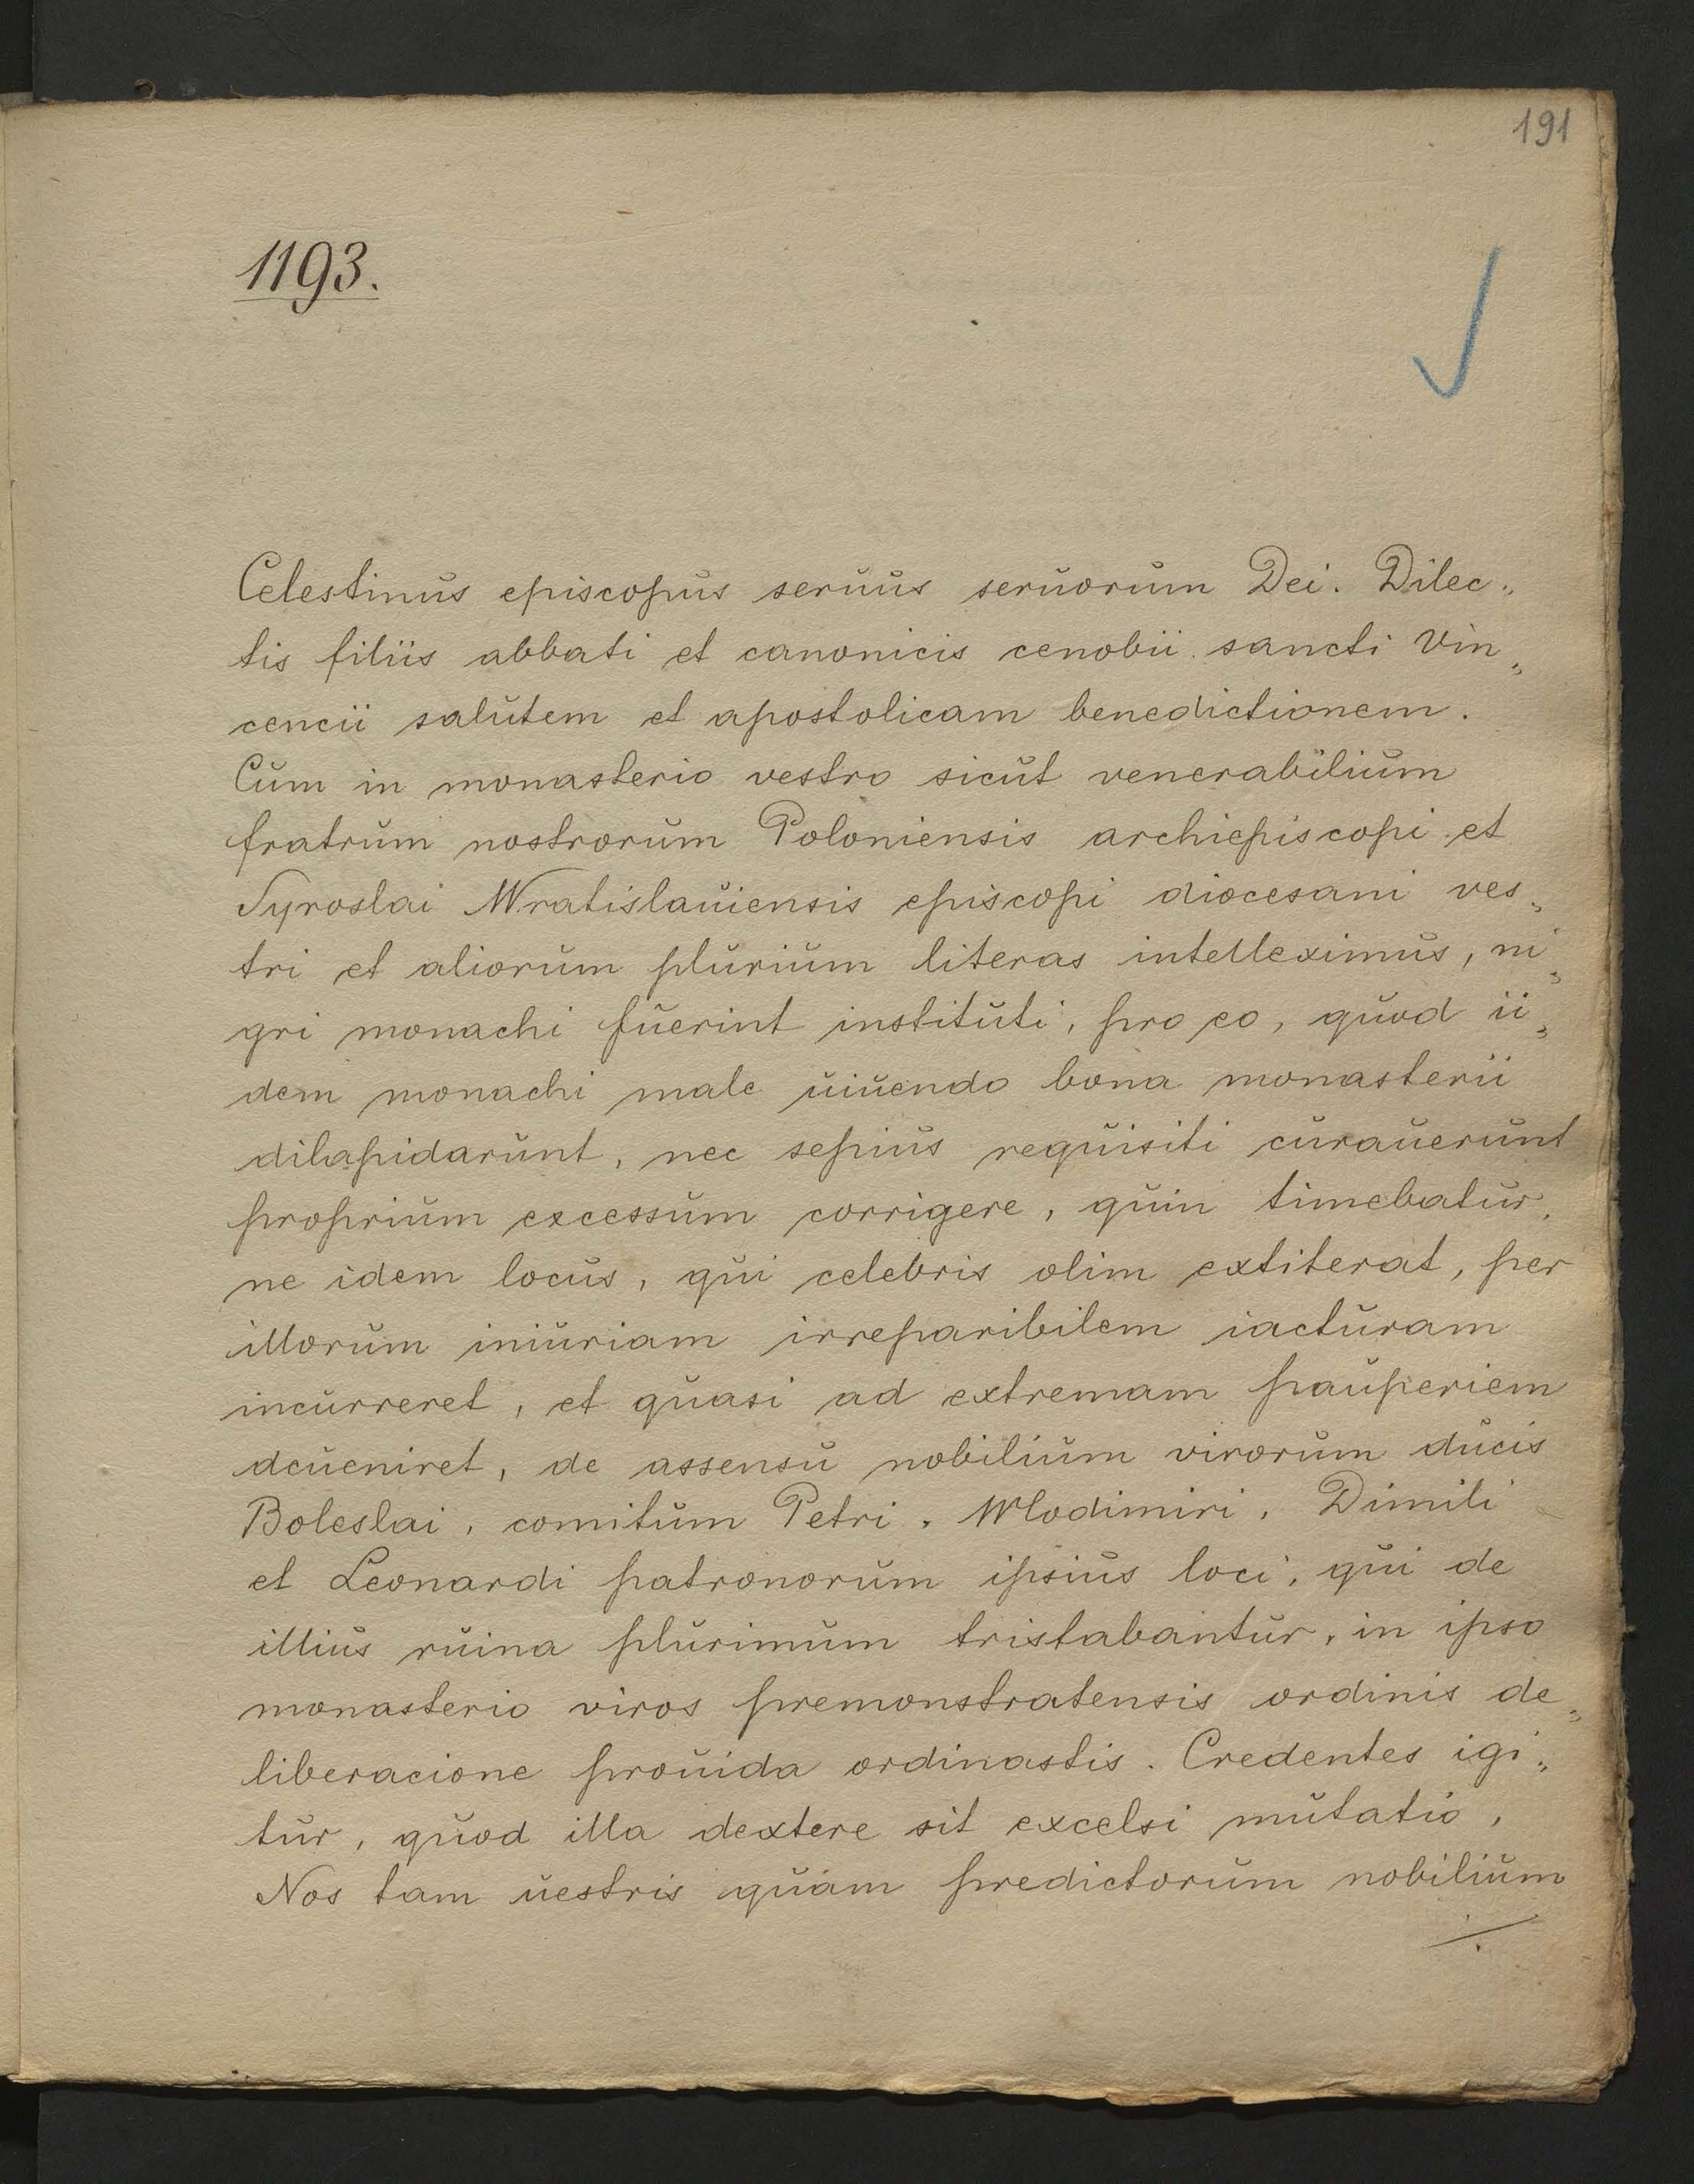 191
1193.
Celestinus episcopus seruus seruorum Dei. Dilec„
tis filiis abbati et canonicis cenobii sancti Vin„
cencii salutem et apostolicam benedictionem.
Cum in monasterio vestro sicut venerabilium
fratrum nostrorum Poloniensis archiepiscopi et
Syroslai Wratislauiensis episcopi diocesani ves„
tri et aliorum plurium literas intelleximus, ni„
gri monachi fuerint instituti, pro eo, quod ii„
dem monachi male uiuendo bona monasterii
dilapidarunt, nec sepius requisiti curauerunt
proprium excessum corrigere, quin timebatur,
ne idem locus, qui celebris olim extiterat, per
illorum iniuriam irreparibilem iacturam
incurreret, et quasi ad extremam pauperiem
deueniret, de assensu nobilium virorum ducis
Boleslai, comitum Petri, Wlodimiri, Dimili
et Leonardi patronorum ipsius loci, qui de
illius ruina plurimum tristabantur, in ipso
monasterio viros premonstratensis ordinis de„
liberacione prouida ordinastis. Credentes igi„
tur, quod illa dextere sit excelsi mutatio,
Nos tam uestris quam predictorum nobilium
./.